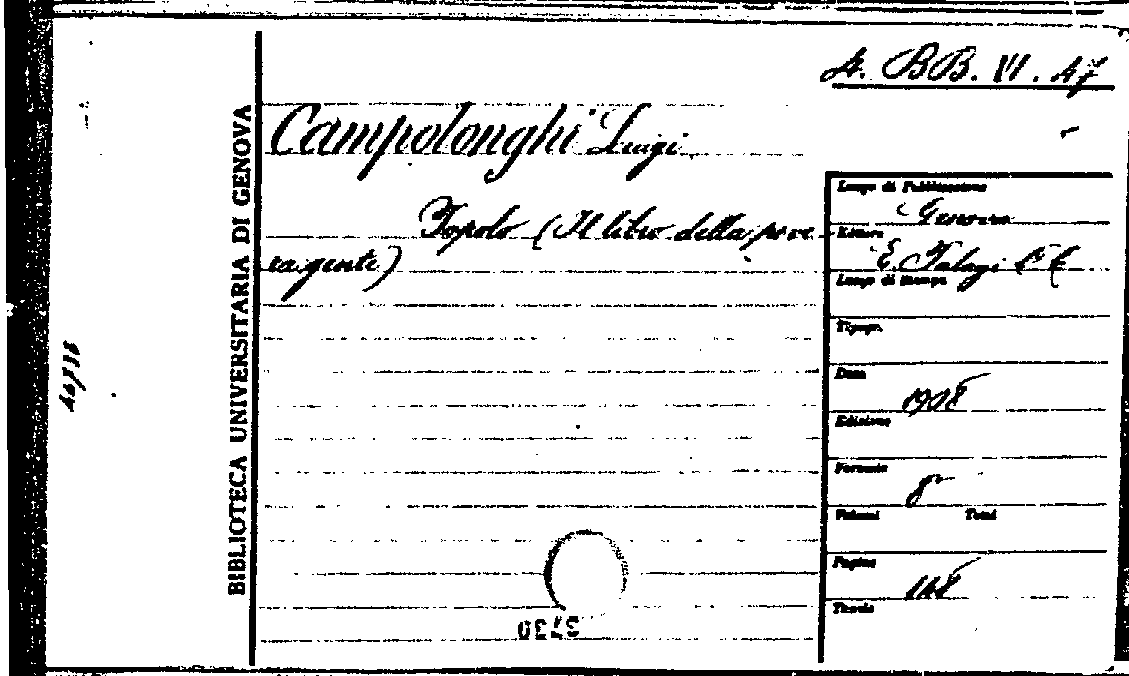 4. BB. VI. 47
Campolonghi Luigi
Popolo (Il libro della pove
ra gente)
BIBLIOTECA UNIVERSITARIA DI GENOVA
Luogo di Pubblicazione
Genova
Editore
E. Palagi e C
Luogo di stampa
Tipogr.
Data
1908
Edizione
Formato
8°
Volumi Tomi
Pagine
148
Tavole